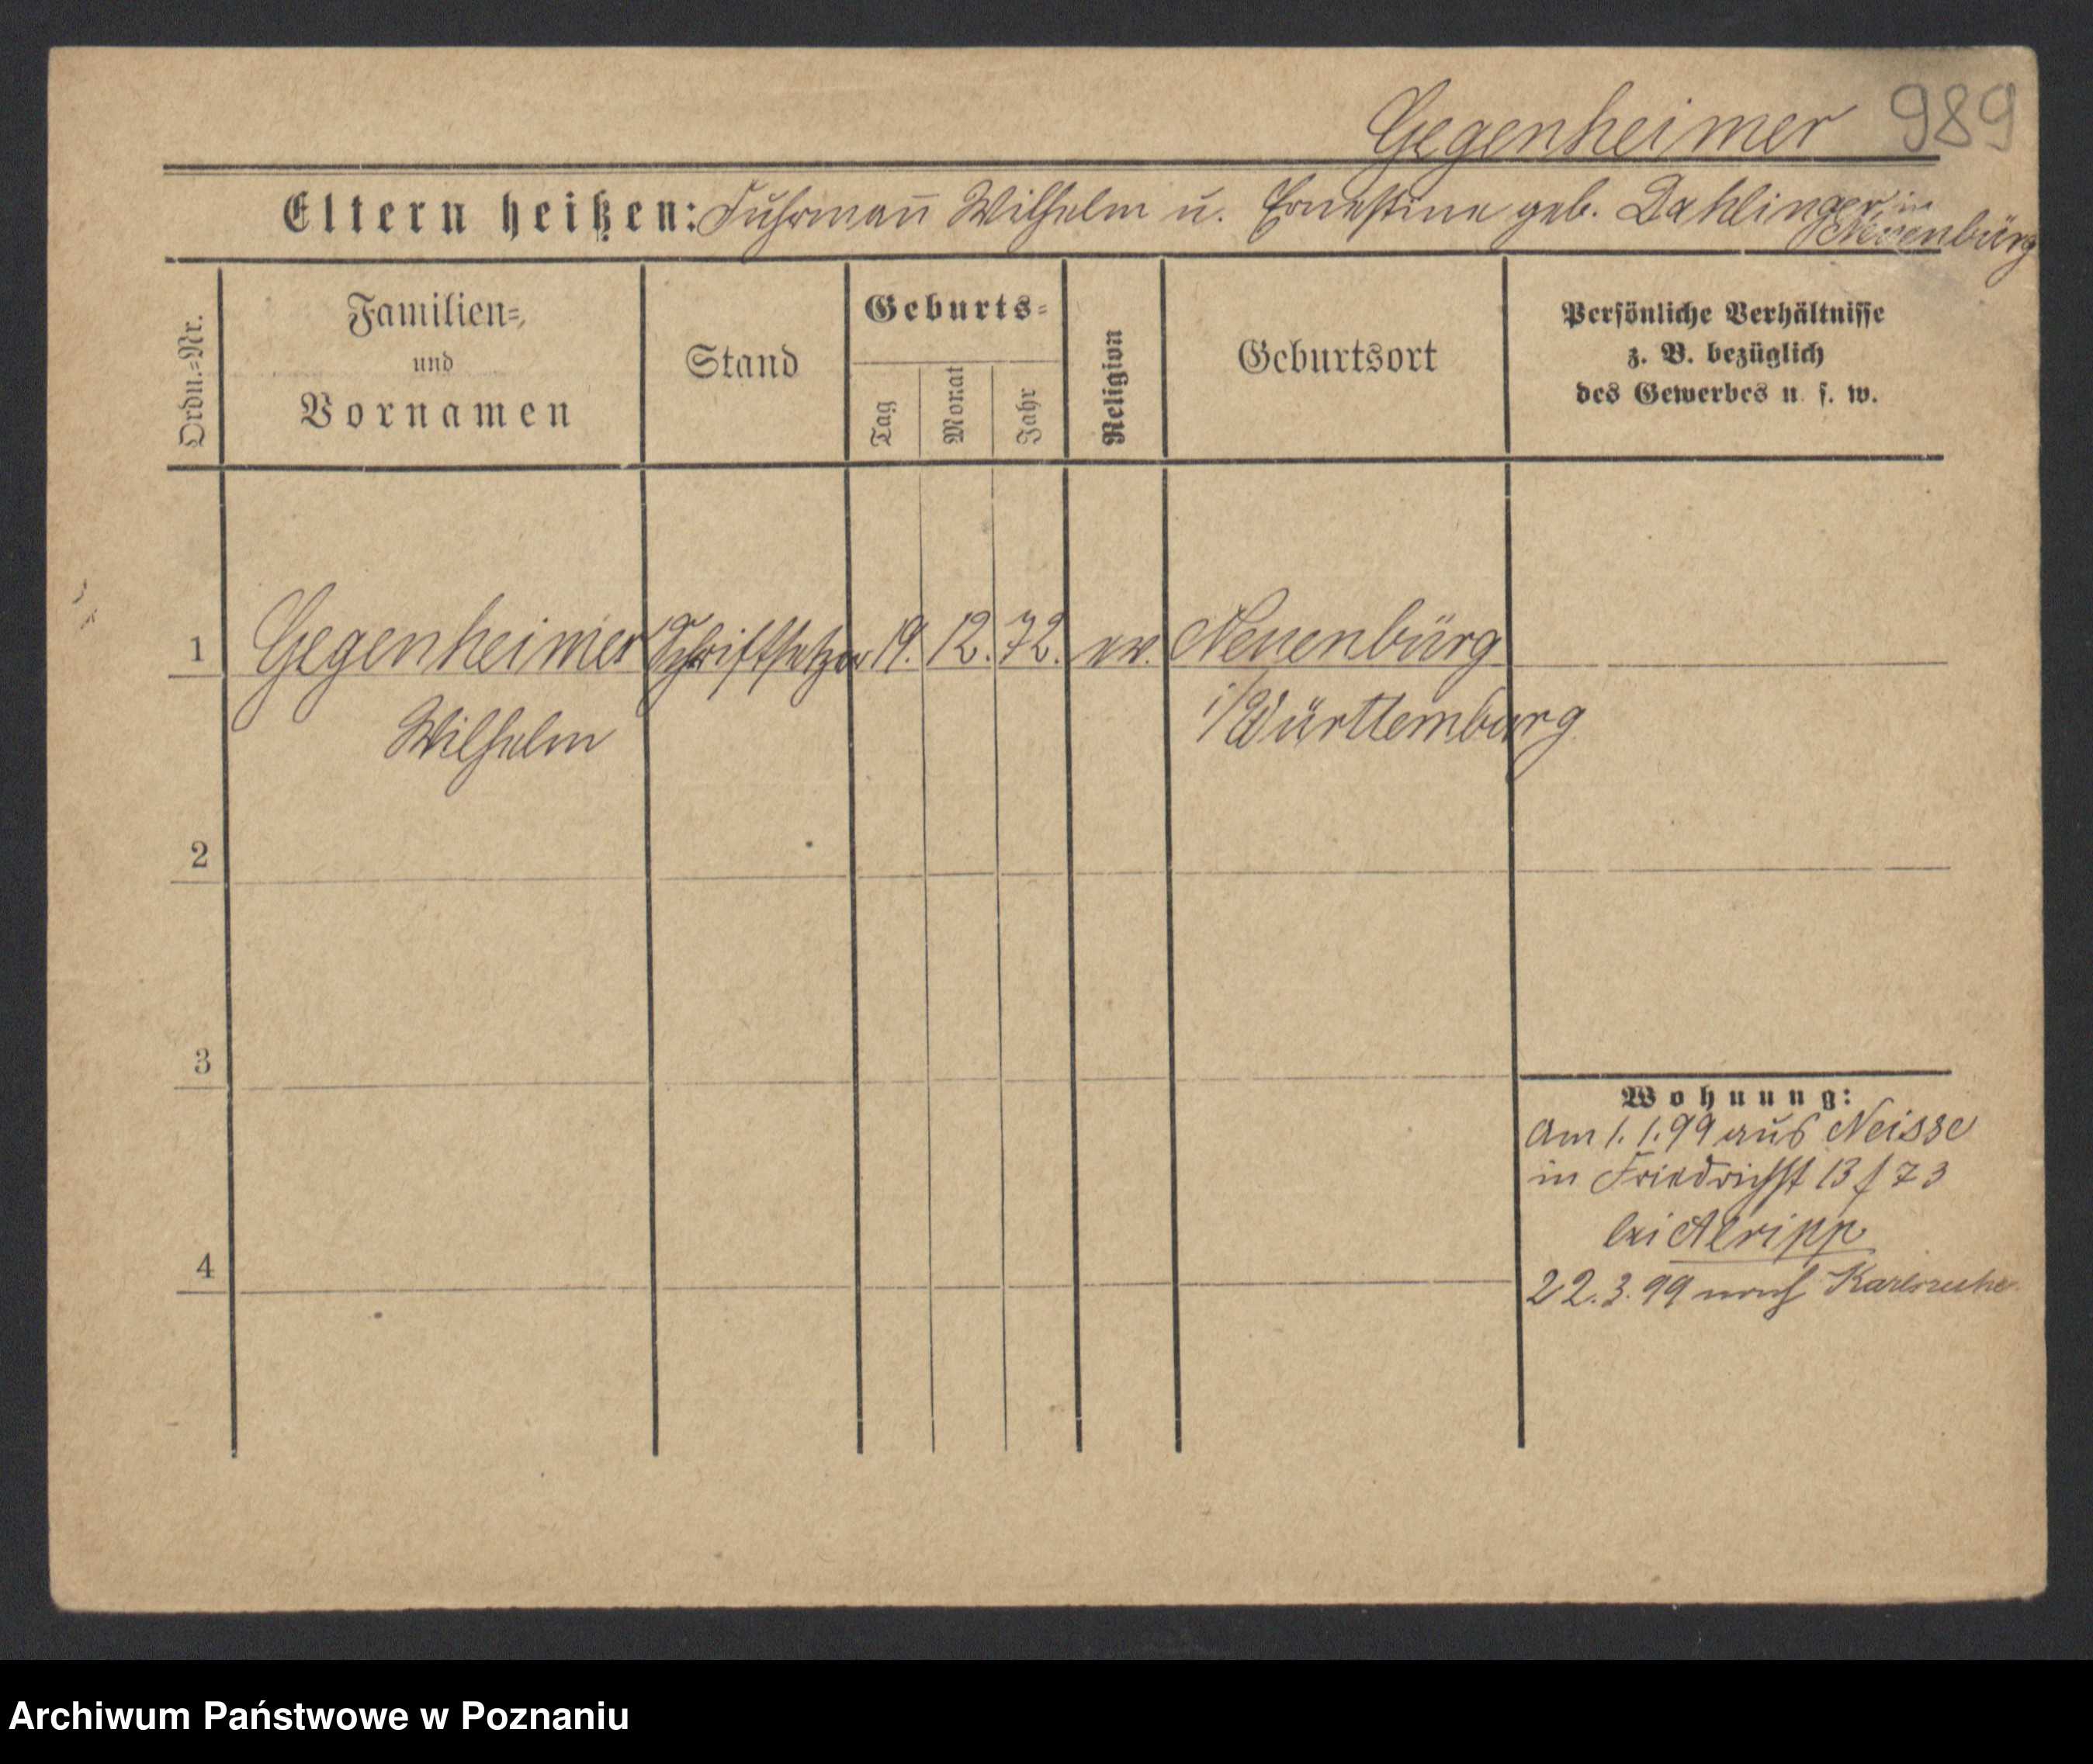 Gegenheimer 989
Eltern heißen: Fuhrman̄ Wilhelm u. Ernestine geb. Dahlinger in
Neuenbürg
Ordn.=Nr.
Familien=,
und
Vornamen
Stand
Geburts=
Tag
Monat
Jahr
Religion
Geburtsort
Persönliche Verhältnisse
z. B. bezüglich
des Gewerbes u. s. w.
1 Gegenheimer Schriftsetzer 19. 12. 72. ev. Neuenbürg
Wilhelm i/Württemburg
2
3
Wohnung:
Am 1.1.99 aus Neisse
in Friedrichst 13 f 73
bei
4
22.3.99 nach Karlsruhe
Archiwum Państwowe w Poznaniu